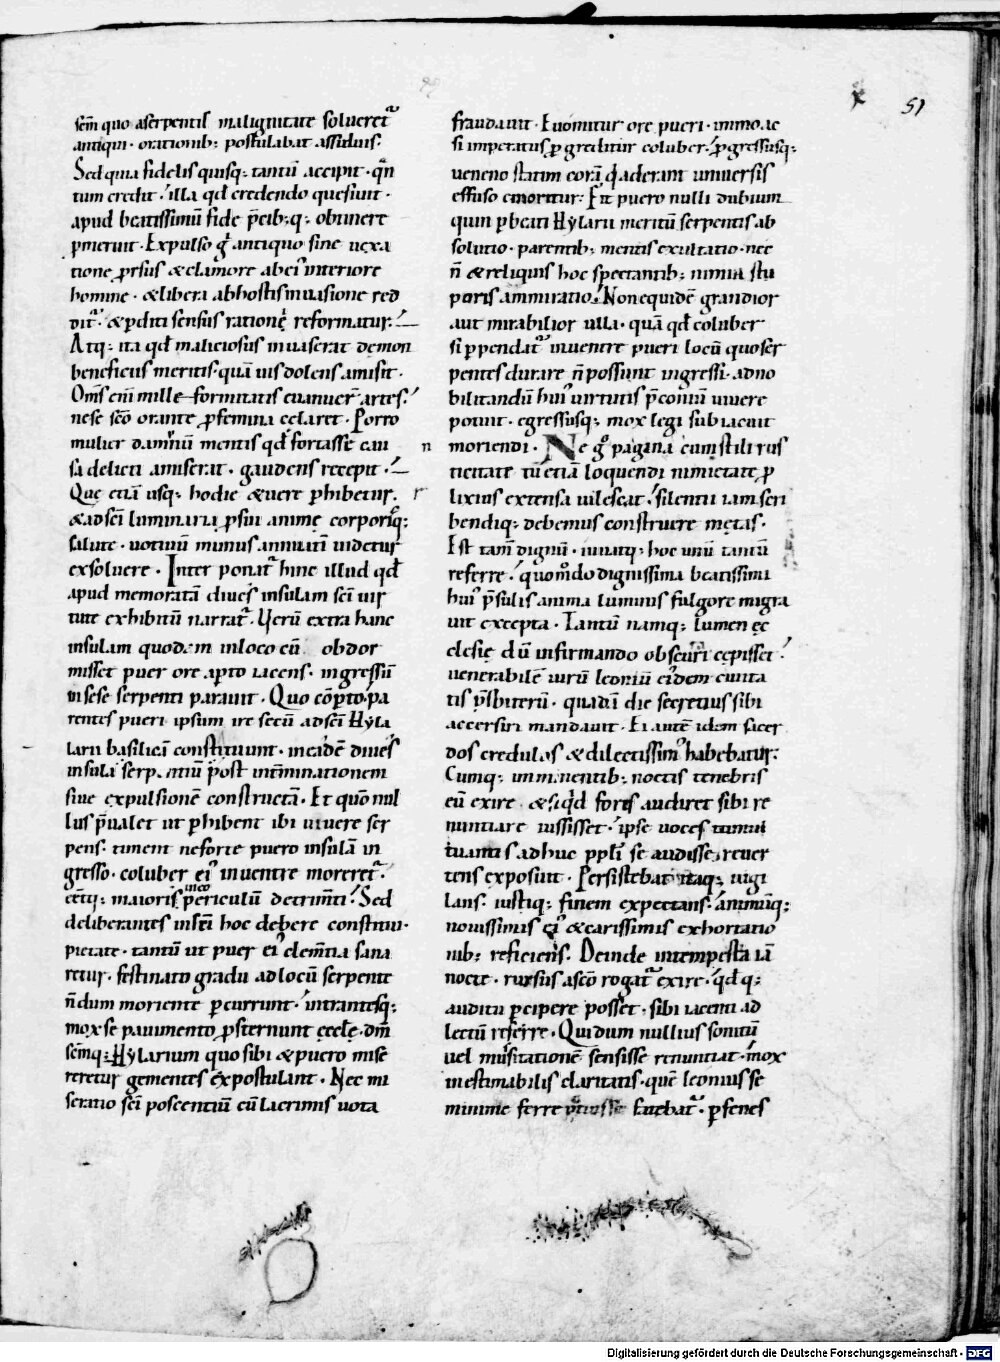 51
sem̄ quo aserpentis malignitate solueret᷑
antiqui · orationib; postulabat assiduis.
Sed quia fidelis quisq; tantū accipit · q̄n
tum credit · illa qd̄ credendo quesiuit ·
apud beatissimū fide p̄cib;q; obtinere
pmeruit · Expulso g̊ antiquo sine uexa
tione prsus & clamore ab ei᷒ interiore
homine · & libera abhostis inuasione red
dit᷑ · & pditi sensus ratione reformatur.
Atq; ita qd̄ maliciosus inuaserat demon
beneficus meritis quā uis dolens amisit ·
Om̄s eni mille formitatis euanuer̄ artes.
nese sc̄o orante p femina celaret · Porro
mulier damnū mentis qd̄ fortasse cau
sa delicti amiserat · gaudens recepit ·
Que etiā usq; hodie & uere phibetur.
& ad sc̄i luminaria p sui anime corporisq;
salute · uotiuū munus annuati uidetur
exsoluere · Inter ponat᷑ hinc illud qd̄
apud memoratā diues insulam sc̄i uir
tute exhibitū narrat᷑. Verū extra hanc
insulam quodam inloco cū obdor
misset puer ore apto iacens · ingressū
in sese serpenti parauit · Quo cōpto pa
rentes pueri ipsum ire secū ad sc̄i Hyla
larii basilicā constituunt · incadē diues
insula serp ntiū post int̄minationem
siue expulsionē constructā · Et quō nul
lus p̄ualet ut phibent ibi uiuere ser
pens · timent neforte puero insulā in
gresso · coluber ei᷒ inuentre moreret᷑ ·
eētq; maioris inco periculū detrim̄ti. Sed
deliberantes insc̄i hoc debere constitui ·
pietate · tantū ut puer ei᷒ clem̄tia sana
retur · festinato gradu ad locū serpente
n̄dum moriente percurrunt · intrantesq;
mox se pauimento psternunt eccl̄e · dm̄
sēmq; Hylarium quo sibi & puero mise
reretur gementes expostulant · Nec mi
seratio sc̄i poscentiū cū lacrimis uota
fraudauit · Euomitur ore pueri · immo ac
si imperatus pgreditur coluber · pgressusq;
ueneno statim corā q̄ aderant uniuersis
effuso emoritur · Fit puero nulli dubium
quin p beati Hylarii meritū serpentis ab
solutio · parentib; mentis exultatio · nec
n̄ & reliquis hoc spectantib; nimia stu
poris ammiratio. Non equidē grandior
aut mirabilior ulla · quā qd̄ coluber
si ppendat᷑ inuentre pueri locū quo ser
pentes durare n̄ possunt ingressi · ad no
bilitandū hui᷒ uirtutis p̄coniū uiuere
potuit · egressusq; mox legi subiacuit
moriendi · Ne g̊ pagina cum stili rus
n
ticitate tū etiā loquendi nimietate p
lixius extensa uilescat · silentii iam scri
bendiq; debemus construere metas ·
Est tam̄ dignū · iuuatq; hoc unū tantū
referre · quom̊do dignissima beatissimi
hui᷒ p̄sulis anima luminis fulgore migra
uit excepta · Tantū namq; lumen ec
clesie dū infirmando obscuri cepisset.
uenerabilē uirū leoniū eidem ciuita
tis p̄sbiterū · quadā die secretius sibi
accersiri mandauit · Ei autē idem sacer
dos credulus & dilectissim᷒ habebatur.
Cumq; imminentib; noctis tenebris
eū exire · & si qd foris audiret sibi re
nuntiare iussisset · ipse uoces tumul
tuantis adhuc ppl̄i se audisse reuer
tens exposuit · Persistebat itaq; uigi
lans · iustiq; finem expectans · animūq;
nouissimis ei᷒ & carissimis exhortatio
nib; reficiens. Deinde intempesta iā
nocte · rursus a sc̄o rogat᷑ exire · qd̄q;
auditu percipere posset · sibi iacenti ad
lectū referre · Qui dum nullius sonitū
uel musitationē sensisse renuntiat · mox
inestimabilis claritatis · quē leonius se
minime ferre fatebat᷑ · p fenes
Digitalisierung gefördert durch die Deutsche Forschungsgemeinschaft - DFG